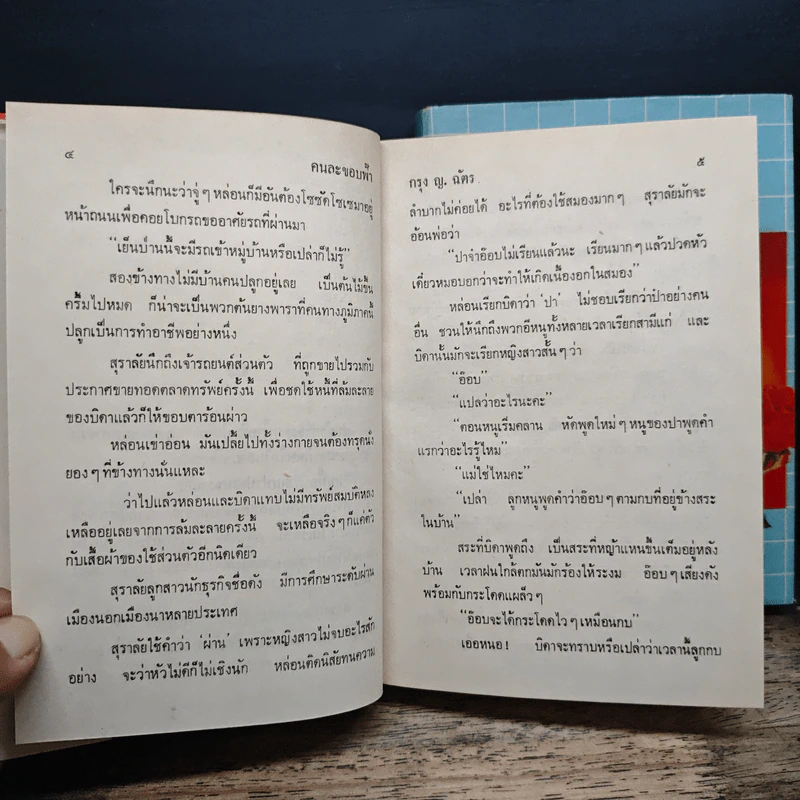 ๔
คนละขอบฟ้า
ใครจะนึกนะว่าจู่ๆ หล่อนก็มีอันต้องโซซัดโซเซมาอยู่
หน้าถนนเพื่อคอยโบกรถขออาศัยรถที่ผ่านมา
“เย็นป่านนี้จะมีรถเข้าหมู่บ้านหรือเปล่าก็ไม่รู้”
สองข้างทางไม่มีบ้านคนปลูกอยู่เลย เป็นต้นไม้ขึ้น
ครึ้มไปหมด ก็น่าจะเป็นพวกต้นยางพาราที่คนทางภูมิภาคนี้
ปลูกเป็นการทำอาชีพอย่างหนึ่ง
สุราลัยนึกถึงเจ้ารถยนต์ส่วนตัว ที่ถูกขายไปรวมกับ
ประกาศขายทอดตลาดทรัพย์ครั้งนี้ เพื่อชดใช้หนี้ที่ล้มละลาย
ของบิดาแล้วก็ให้ขอบตาร้อนผ่าว
หล่อนเข่าอ่อน มันเปลี้ยไปทั้งร่างกายจนต้องทรุดนั่ง
ยองๆ ที่ข้างทางนั่นแหละ
ว่าไปแล้วหล่อนและบิดาแทบไม่มีทรัพย์สมบัติหลง
เหลืออยู่เลยจากการล้มละลายครั้งนี้ จะเหลือจริงๆ ก็แค่ตัว
กับเสื้อผ้าของใช้ส่วนตัวอีกนิดเดียว
สุราลัยลูกสาวนักธุรกิจชื่อดัง มีการศึกษาระดับผ่าน
เมืองนอกเมืองนาหลายประเทศ
สุราลัยใช้คำว่า ‘ผ่าน’ เพราะหญิงสาวไม่จบอะไรสัก
อย่าง จะว่าหัวไม่ดีก็ไม่เชิงนัก หล่อนติดนิสัยทนความ
กรุง ญ. ฉัตร
๕
ลำบากไม่ค่อยได้ อะไรที่ต้องใช้สมองมากๆ สุราลัยมักจะ
อ้อนพ่อว่า
“ปาจ๋าอ๊อบไม่เรียนแล้วนะ เรียนมากๆ แล้วปวดหัว
เดี๋ยวหมอบอกว่าจะทำให้เกิดเนื้องอกในสมอง”
หล่อนเรียกบิดาว่า ‘ปา’ ไม่ชอบเรียกว่าป๋าอย่างคน
อื่น ชวนให้นึกถึงพวกอีหนูทั้งหลายเวลาเรียกสามีแก่ และ
บิดานั้นมักจะเรียกหญิงสาวสั้นๆ ว่า
“อ๊อบ”
“แปลว่าอะไรนะคะ”
“ตอนหนูเริ่มคลาน หัดพูดใหม่ๆ หนูของปาพูดคำ
แรกว่าอะไรรู้ไหม”
“แม่ใช่ไหมคะ”
“เปล่า ลูกหนูพูดคำว่าอ๊อบๆ ตามกบที่อยู่ข้างสระ
ในบ้าน”
สระที่บิดาพูดถึง เป็นสระที่หญ้าแหนขึ้นเต็มอยู่หลัง
บ้าน เวลาฝนใกล้ตกมันมักร้องให้ระงม อ๊อบๆ เสียงดัง
พร้อมกับกระโดดแผล็วๆ
“อ๊อบจะได้กระโดดไวๆ เหมือนกบ”
เออหนอ! บิดาจะทราบหรือเปล่าว่าเวลานี้ลูกกบ